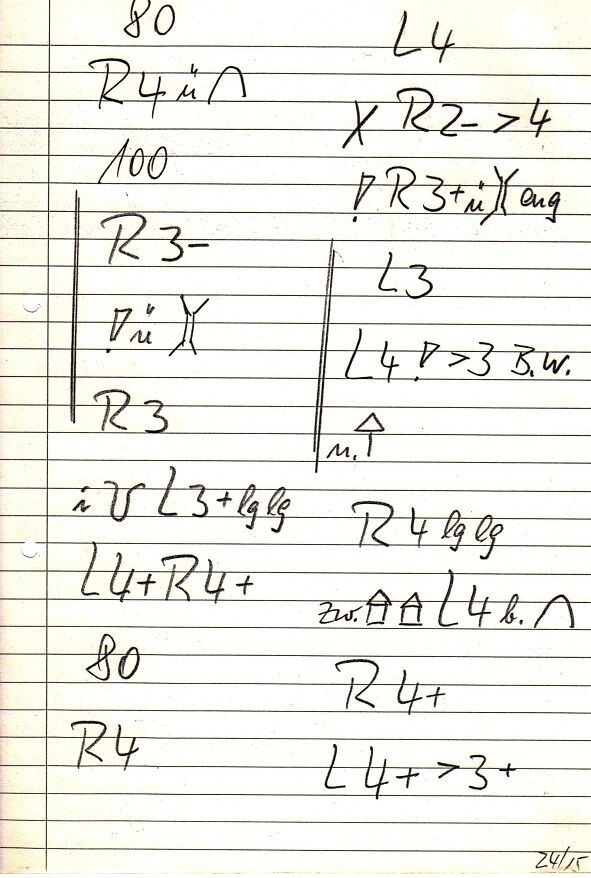 80
R4 ü ∩
100
R3-
! ü )(
R3
i V L3+ lg lg
L4+ R4+
80
R4
L4
R2- > 4
! R3+ ü )( eng
L3
L4 ! > 3 B.W.
n.
R4 lg lg
zw. L4 b. ∩
R4+
L4+ > 3+
24/15